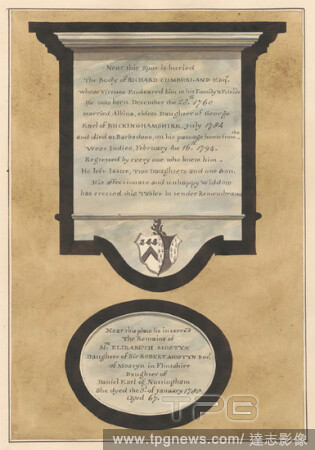 Near this Spot is buried
The Body of RICHARD CUMBERLAND Esqr.
whose Virtues Endeared him to his Family & Friends
He was born December the 25th 1760
married Albina, eldest Daughter of George
Earl of BUCKINGHAMSHIRE, July 1784
and died at Barbadoes, on his passage from the
West Indies, February the 16th 1794.
Regretted by every one who knew him.
He left Issue, Two Daughters and one Son.
His affectionate and unhappy Widdow
has erected this Tablet in tender Remembrance
Near this place be interred
The Remains of
Mrs ELIZABETH MOSTYN
Daughter of Sir ROBERT MOSTYN
of Mostyn in Flintshire
Daughter of
Daniel Earl of Nottingham
She dyed the of January
Aged 67.
TPG
www.tpgnews.com/ 達志影像